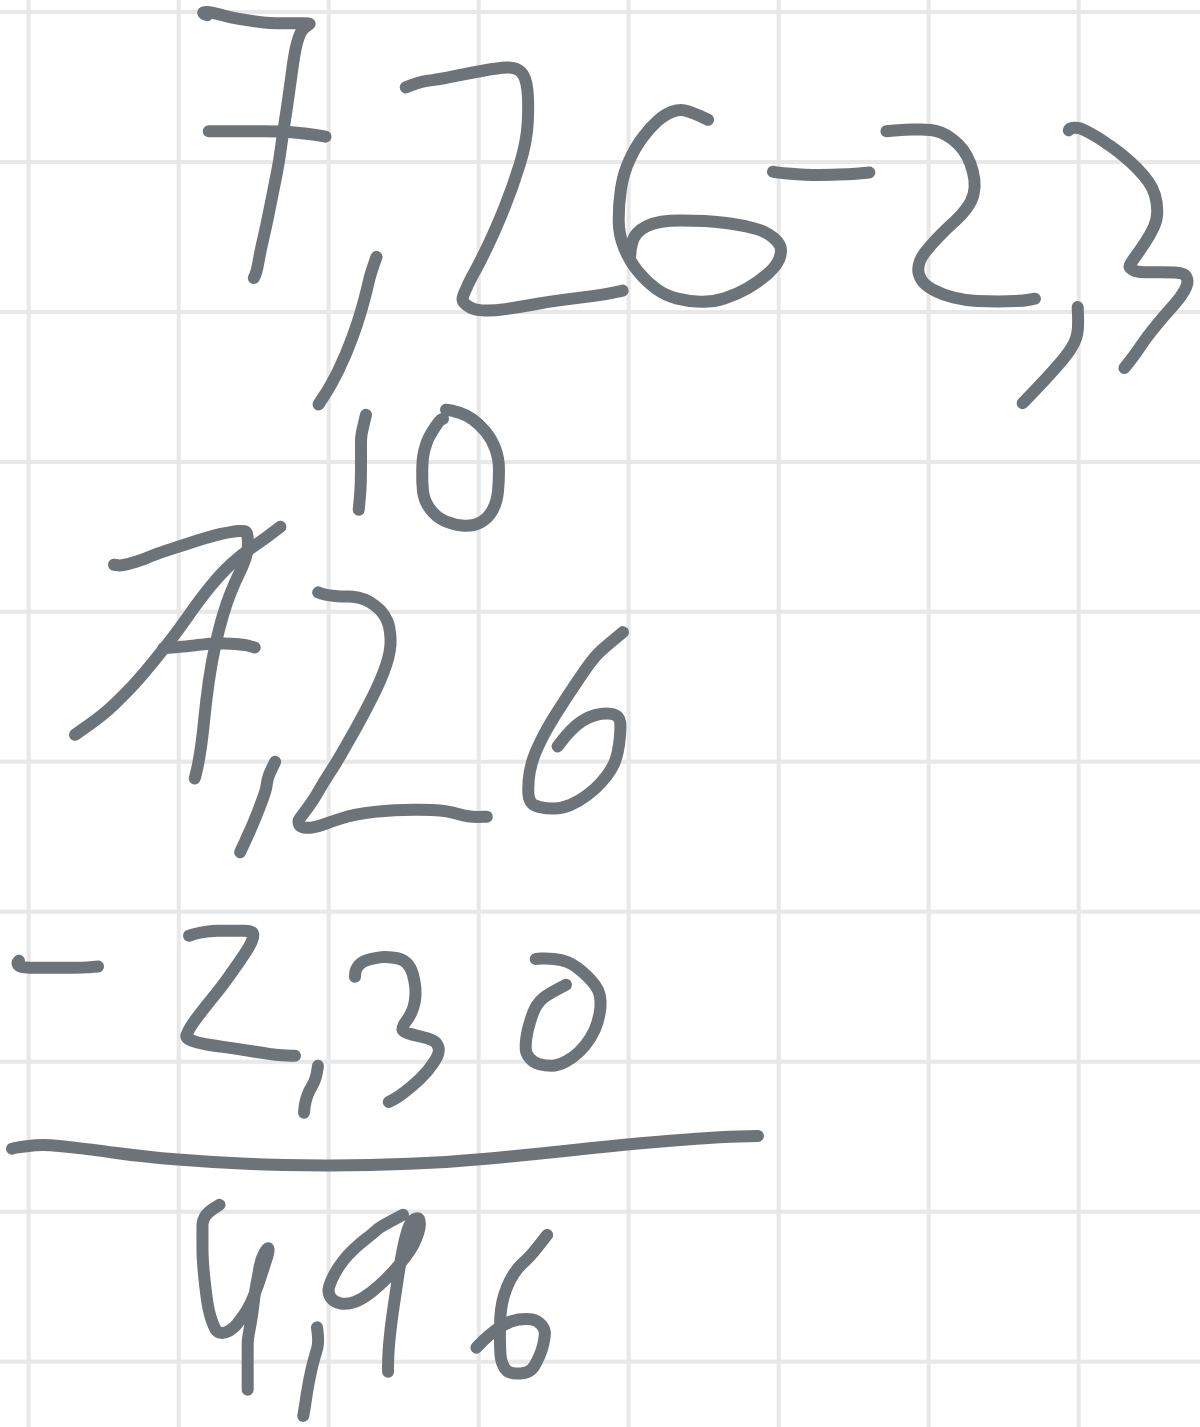 7,26-2,3
10
7,26
-2,30
4,96